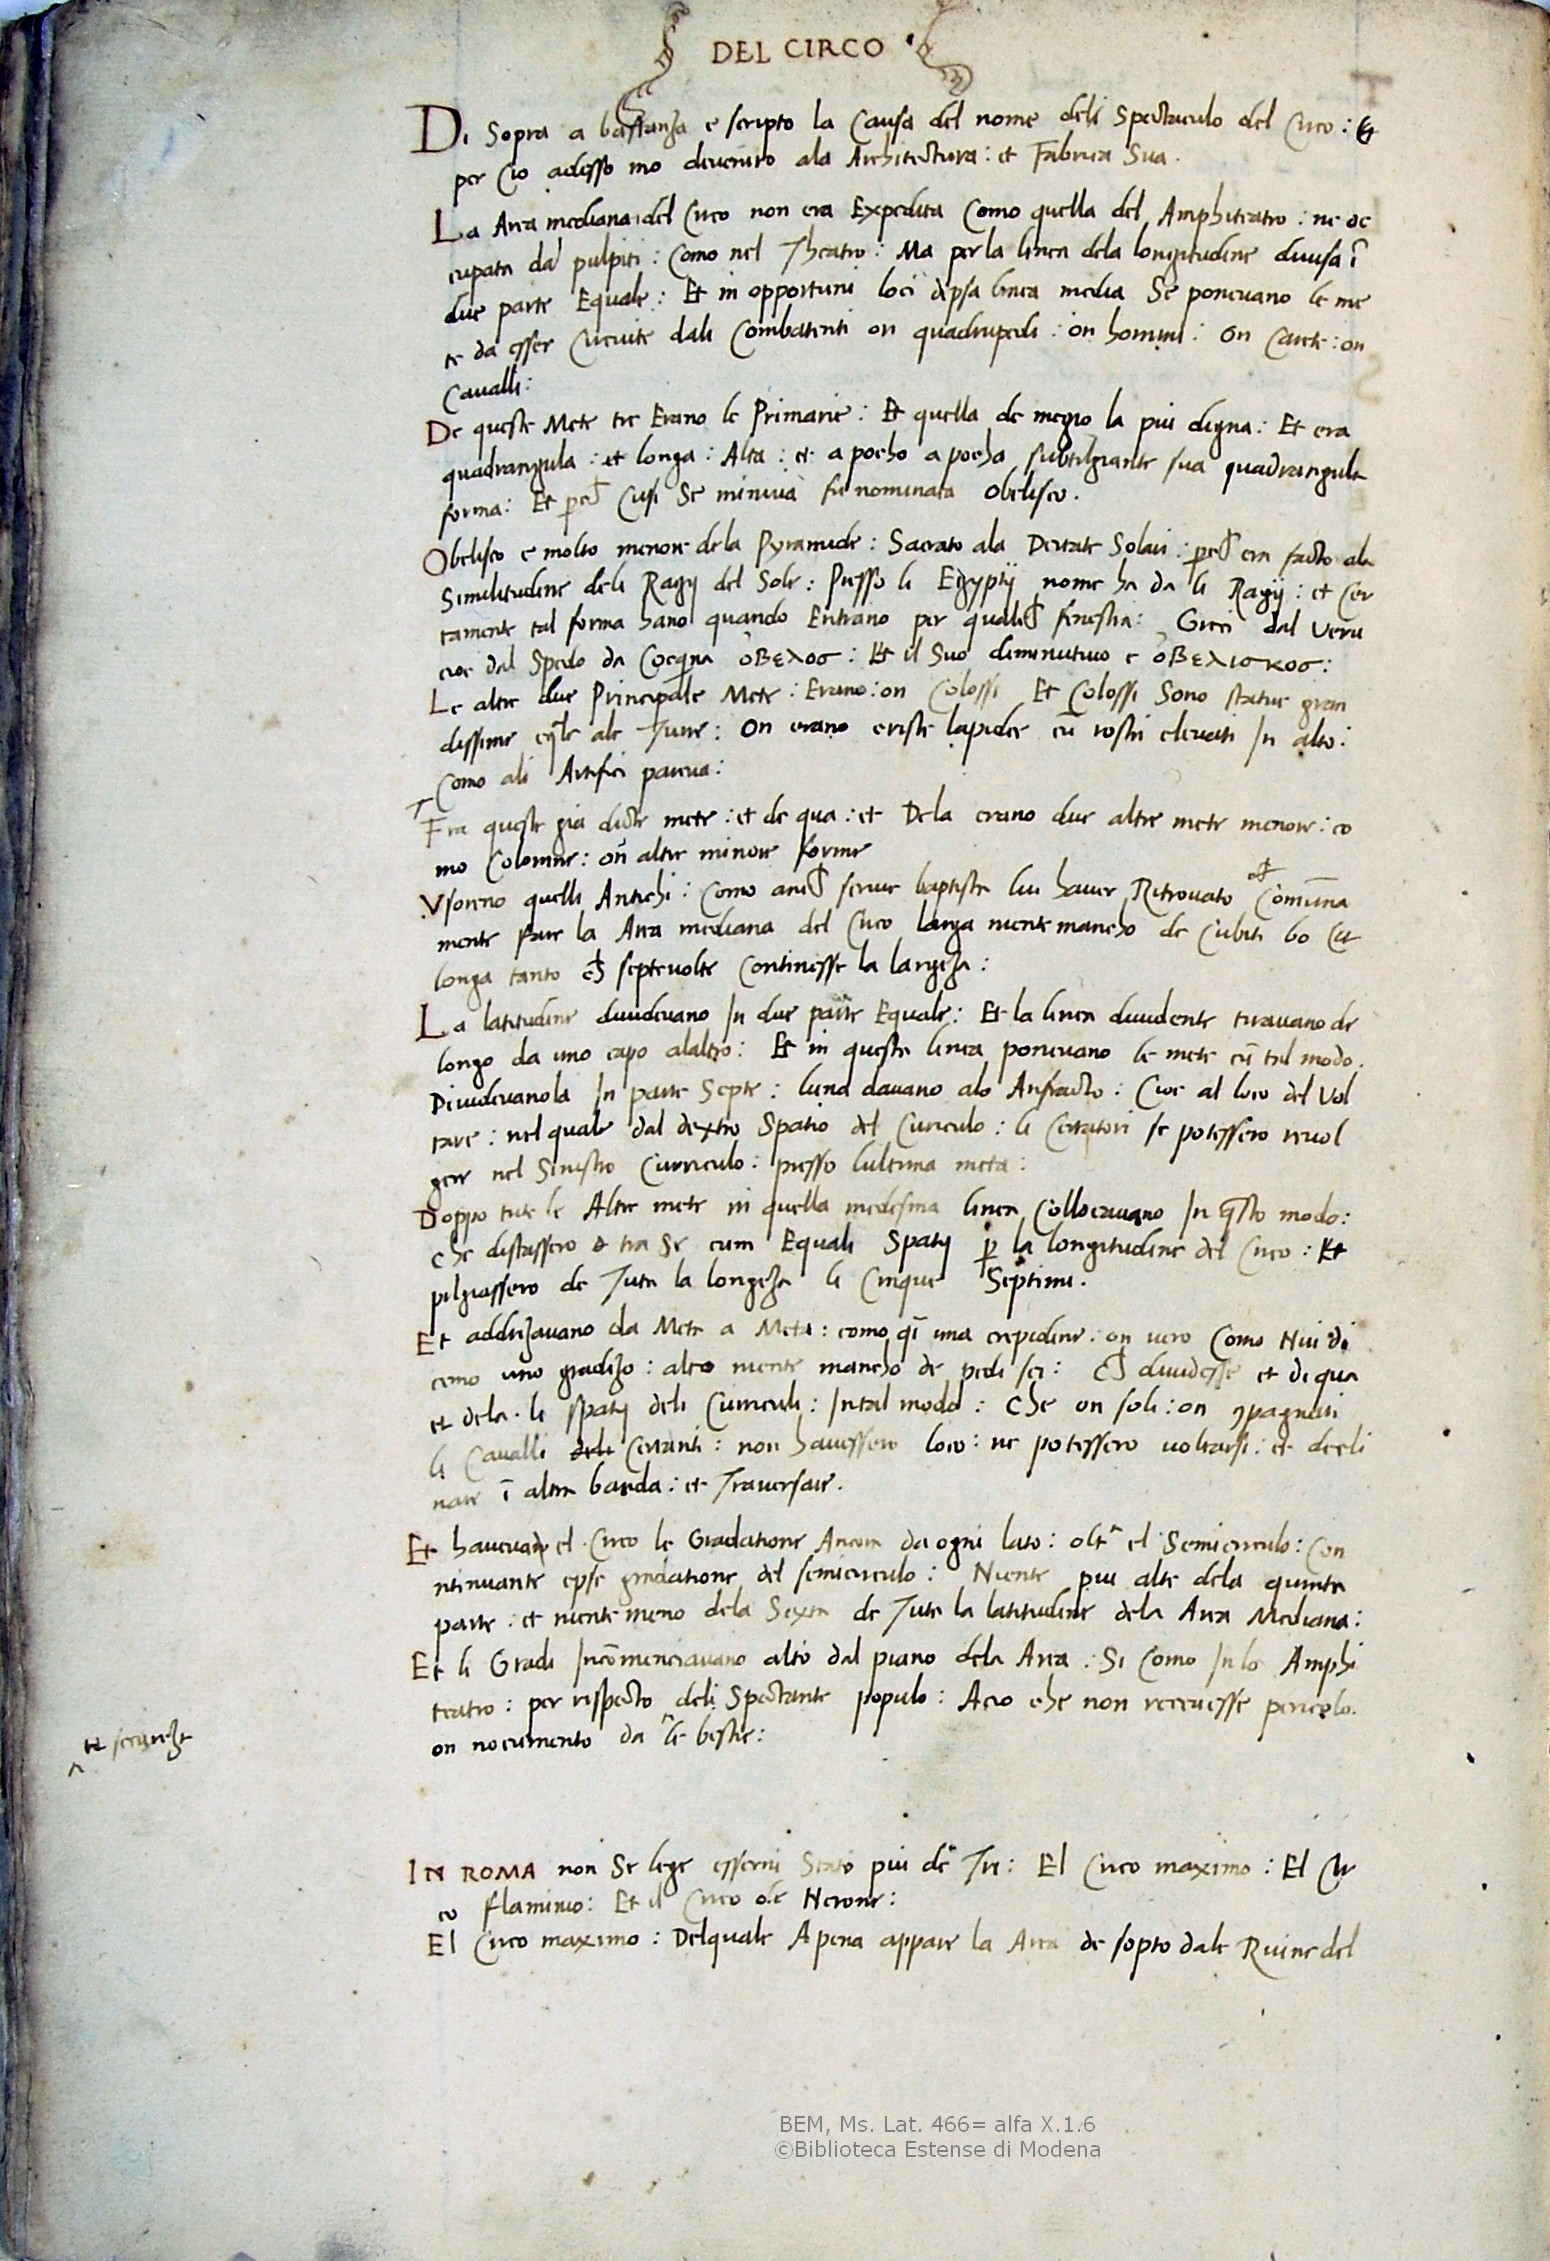 DEL CIRCO
Di Sopra a bastanza e scripto la Causa del nome deli Spectaculo del Circo: Et
per Cio adesso mo deveniro ala Architectura: et Fabrica Sua.
La Area mediana del Circo non era Expedita Como quella del Amphiteatro: ne oc
cupata da pulpiti: Como nel Theatro: Ma per la linea dela longitudine divisa ĩ
due parte Equale: Et in opportuni loci depsa linea media Se ponevano le me
te da esser Circuite dali Combatenti on quadrupedi: on homini: on Carete: on
Cavalli:
De queste Mete tre Erano le Primarie: Et quella de megio la piu digna: Et era
quadrangula: et longa: Alta: et a pocho a pocha subtilgiante sua quadrangula
forma: Et ꝑche Cusi Se minuia fu nominata Obelisco.
Obelisco e molto menore dela Pyramide: Sacrato ala Deitate Solari: ꝑche era facto ala
Similitudine deli Ragij del Sole: Presso li Egyptij nome ha da li Ragij: et Cer
tamente tal forma hano quando Entrano per qualche fenestra: Greci dal Veru
cioe dal Spedo da Cocqina ὀβελοσ: Et il Suo diminutivo e ὀβελισκοσ:
Le altre due Principale Mete: Erano: on Colossi Et Colossi Sono statue gran
dissime eqle ale Turre: On erano eriste lapidee cũ rostri elevati In alto:
Como ali Artifici pareva:
Fra queste gia dicte mete: et de qua: et Dela erano due altre mete menore: co
mo Colomne: on altre minore forme
Usoreno quelli Antichi: Como anch scrive baptista lui haver Ritrovato ch Comũna
mente fare la Area mediana del Circo larga niente mancho de Cubiti 60 Et
longa tanto ch septe volte Continesse la largeza:
La latitudine dividevano In due parte Equale: Et la linea dividente tiravano de
longo da uno capo alaltro: Et in questa linea ponevano le mete cũ tal modo.
Dividevanola In parte Septe: luna davano alo Anfracto: Cioe al loco del Vol
tare: nel quale dal dextro Spatio del Curriculo: li Certatori se potessero revol
gere nel Sinistro Curriculo: presso lultima meta:
Doppo tute le Altre mete in quella medesma linea Collocavano In qsto modo:
che distassero tra Se cum Equali Spatij ꝑ la longitudine del Circo: Et
pilgiassero de Tuta la longeza li Cinque Septimi.
Et addrizavano da Meta a Meta: como qĩ una crepidine: on vero Como Nui di
cemo uno gradizo: alto niente mancho de pedi sei: ch dividesse et di qua
et dela. li spatij deli Curriculi: In tal modo: Che on soli: on ꝯpagnati
li Cavalli deli Certanti: non havessero loco: ne potessero voltarsi: et decli
nare ĩ altra banda: et Traversare.
Et havevano el Circo le Gradatione Ancora da ogni lato: oltra el Semicirculo: Con
ntinuante epse gradatione del semicirculo: Niente piu alte dela quinta
parte: et niente meno dela Sexta de Tuta la latitudine dela Area Mediana:
Et li Gradi Incõmenciavano alto dal piano dela Area: Si Como In lo Amphi
teatro: per rispecto deli Spectante populo: Acio che non recevesse periculo.
on nocumento da le bestie:
et secureza
IN ROMA non Se lege esserni Stato piu de Tri: El Circo maximo: El Cir
co flaminio: Et il Circo de Nerone:
El Circo maximo: Del quale A pena appare la Area de sopto dale Ruine del
BEM, Ms. Lat. 466= alfa X.1.6
©Biblioteca Estense di Modena